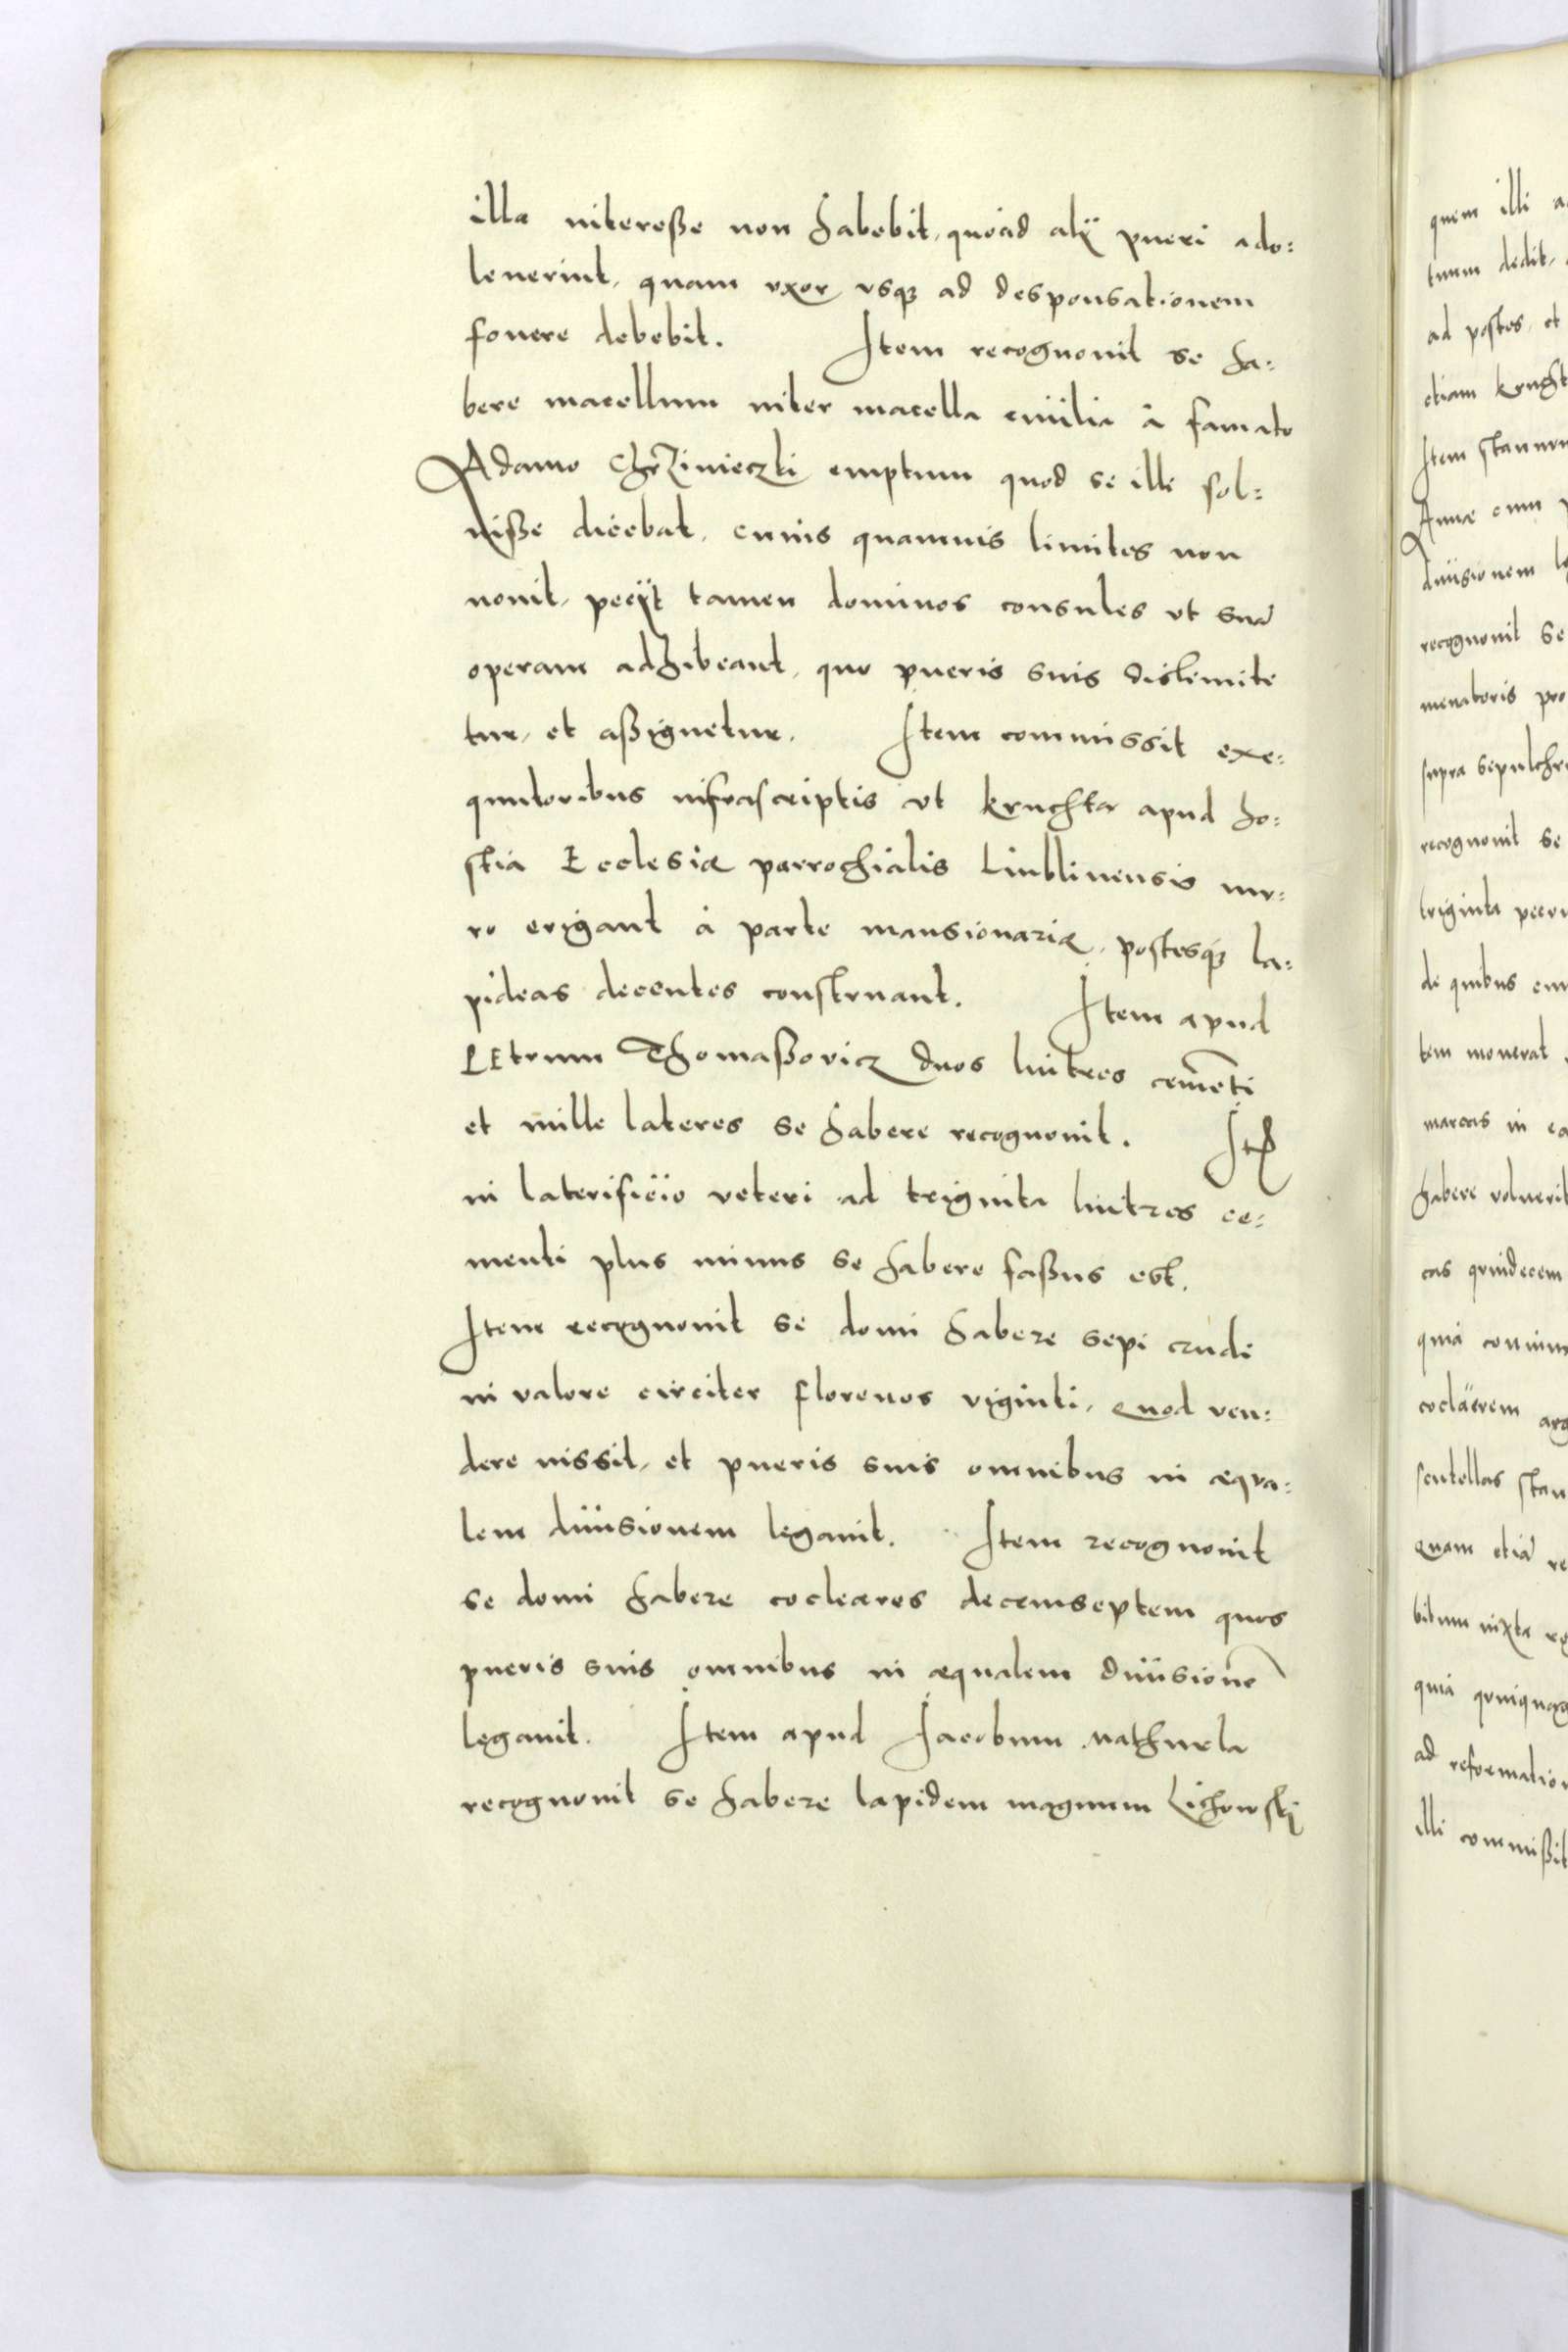 illa interesse non habebit, quoad alÿ pueri ado:
leuerint, quam uxor usq3 ad desponsationem
fouere debebit. Item recognouit se ha:
bere macellum inter macella ciuilia à famato
Adamo Chrzinieczki emptum quod se illi sol:
uisse dicebat, cuius quamuis limites non
nouit, pecÿt tamen dominos consules ut suã
operam adhibeant, quo pueris suis dislimite
tur, et assignetur. Item commissit exe:
quutoribus infrascriptis ut kruchta apud ho:
stia Ecclesiæ parrochialis Liublinensis mu:
ro erigant à parte mansionariæ, postesq3 la:
pideas decentes construant. Item apud
PEtrum Thomassovicz duos lintres cemẽti
et mille lateres se habere recognouit. Itẽ
in laterificio veteri ad triginta lintres ce:
menti plus minus se habere fassus est.
Item recognouit se domi habere sepi crudi
in valore circiter florenos viginti, quod ven:
dere iussit, et pueris suis omnibus in æqua:
lem diuisionem legauit. Item recognouit
se domi habere cocleares decemseptem quos
pueris suis omnibus in æqualem diuisionẽ
legauit. Item apud Iacobum Mathurla
recognouit se habere lapidem magnum Lichowskj
quem illi
tuum dedit,
ad postes, et
etiam
Item
Annæ cum
diuisionem
recognouit se
supra
recognouit se
triginta
de quibus
tem mouerat
marcas in
habere voluerit
cas quindecem
quia
scutellas
quam etiã
bitum iuxta
quia
ad
illi